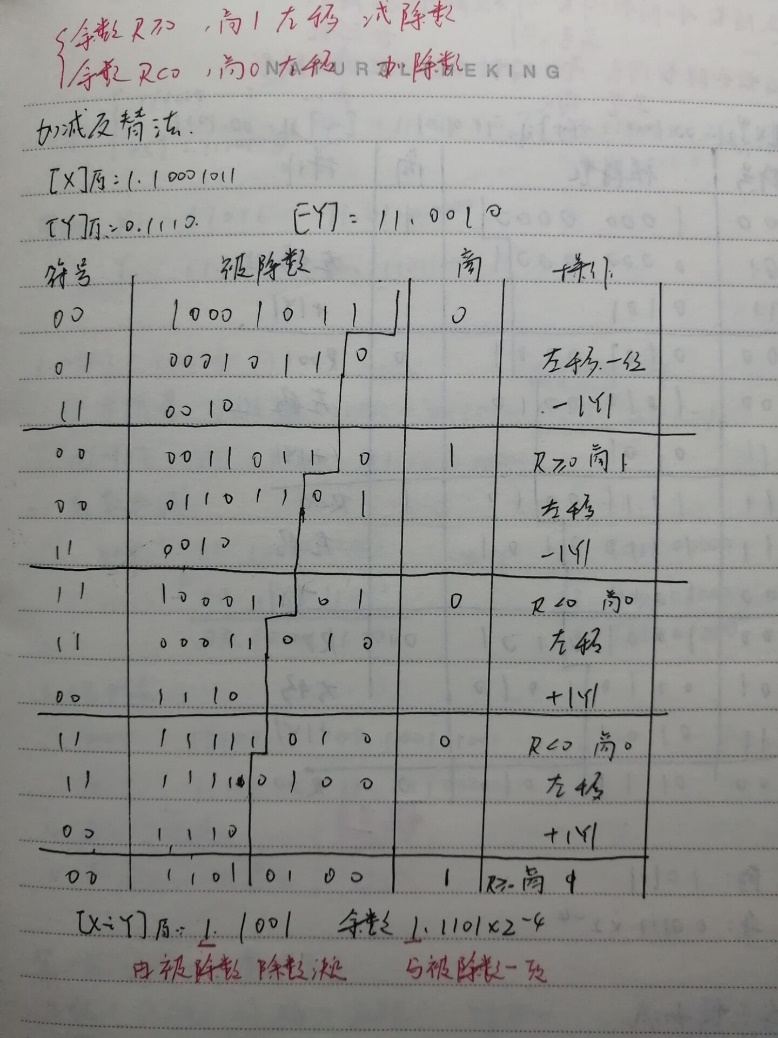 余数 R≥0 , 商1 左移 减除数
余数 R<0 , 商0 左移 加除数
NATURAL SEEKING
加减交替法.
[X]原=1.10001011
[Y]原=0.1110. [-Y]=11.0010
符号 被除数 商 操作
00 10001011 0
01 0001011 0 左移一位
11 0010 -|Y|
00 0011011 0 1 R≥0 商1
00 011011 0 1 左移
11 0010 -|Y|
11 100011 01 0 R<0 商0
11 00011 010 左移
00 1110 +|Y|
11 11111 010 0 R<0 商0
11 1111 0100 左移
00 1110 +|Y|
00 1101 0100 1 R≥0 商1
[X÷Y]原= 1.1001 余数 1.1101×2-4
由被除数 除数决定 与被除数一致